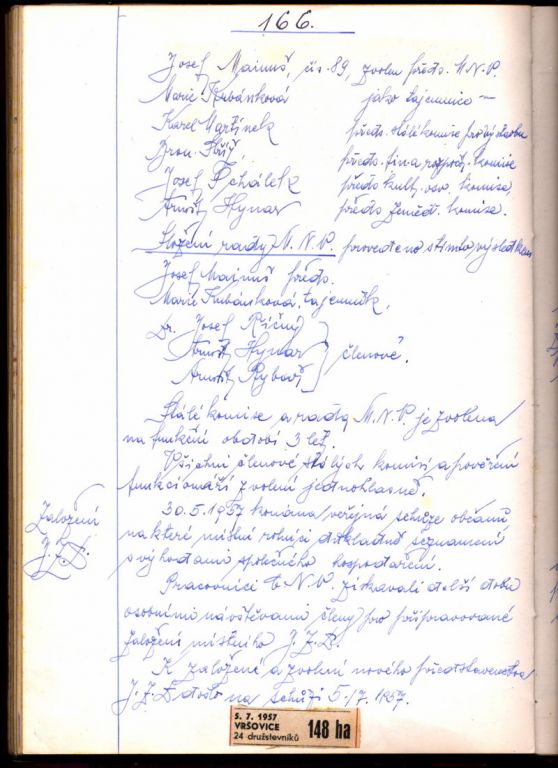 166.
Josef Mainuš, čís. 89, zvolen předs. M.N.V.
Marie Kubánková jako tajemnice —
Karel Martinek předs. stálé komise pro výstavbu
Bron. Stříž, předs. fin. a rozpoč. komise
Josef předs. kult. osv. komise,
Arnošt Hynar předs. zeměd. komise.
Složení rady M.N.V. provedeno s tímto výsledkem
Josef Mainuš předs.
Marie Kubánková, tajemník,
Dr. Josef Říčný
Arnošt Hynar členové.
Arnošt Rybář
Stálé komise a rada M.N.V. je zvolena
na funkční období 3 let.
Všichni členové stálých komisí a pověření
funkcionáři zvoleni jednohlasně.
30.5.1957 konána veřejná schůze občanů,
Založení
J.Z.D.
na které místní rolníci důkladně seznámeni
s výhodami společného hospodaření.
Pracovníci O.N.V. získávali delší dobu
osobními návštěvami členy pro připravované
založení místního J.Z.D.
K založení a zvolení nového představenstva
J.Z.D došlo na schůzi 5./7. 1957.
5. 7. 1957
VRŠOVICE
24 družstevníků
148 ha